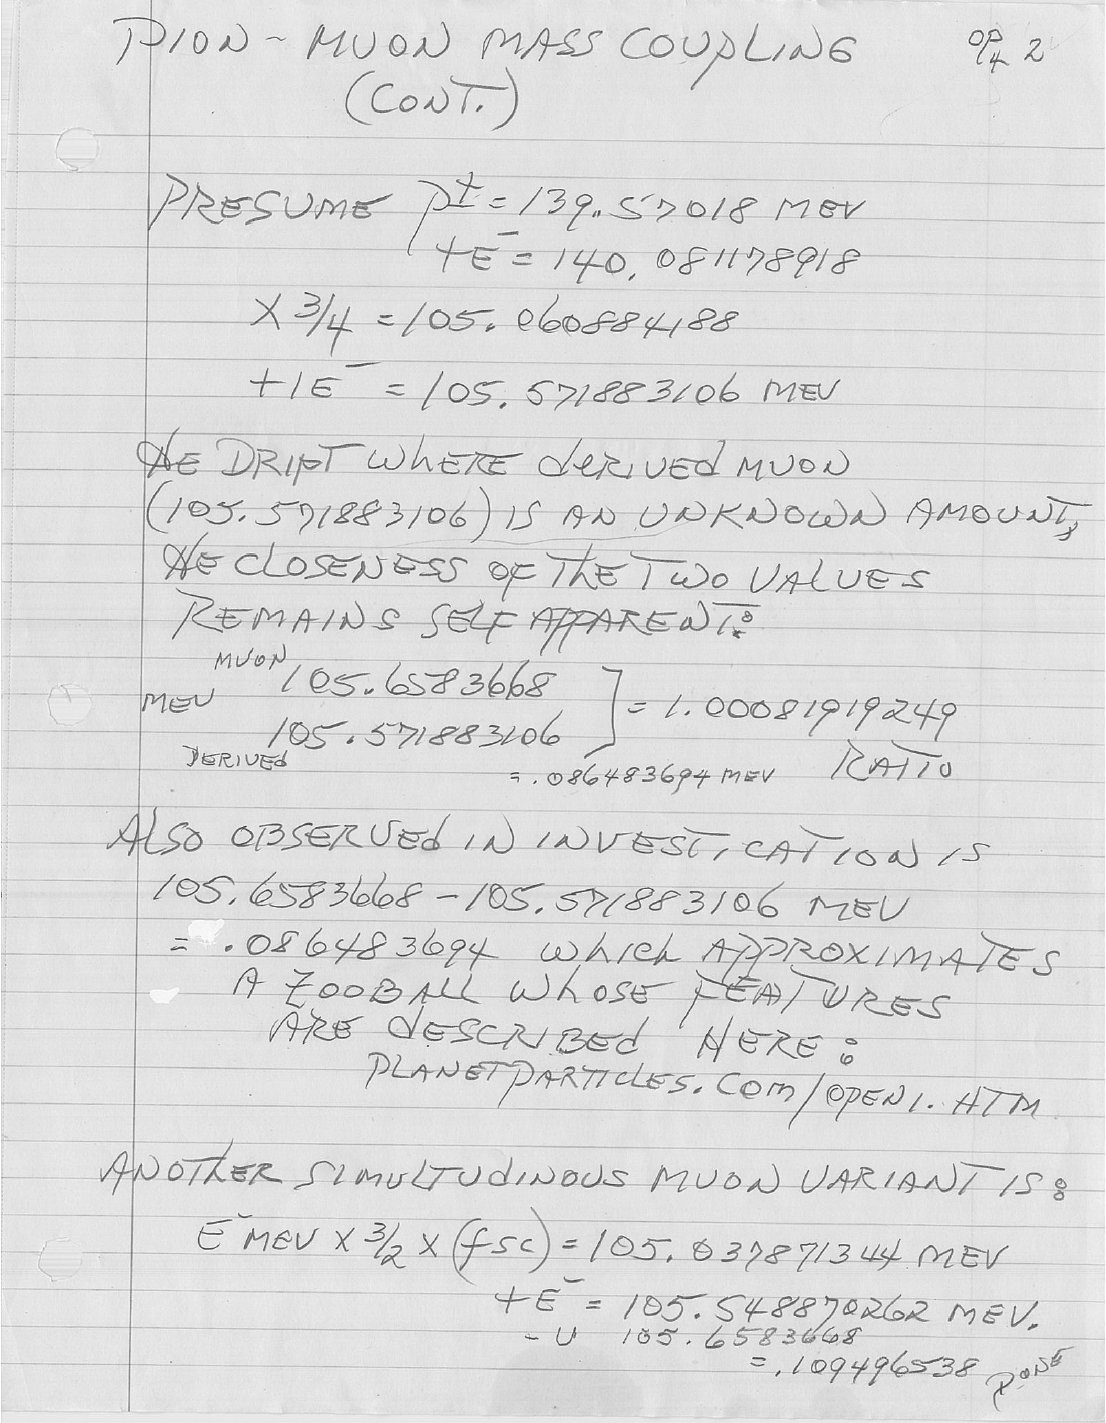 PION - MUON MASS COUPLING
OP4 2
(CONT.)
PRESUME P± = 139.57018 MEV
+E⁻ = 140.081178918
X 3/4 = 105.060884188
+1E⁻ = 105.571883106 MEV
THE DRIFT WHERE DERIVED MUON
(105.571883106) IS AN UNKNOWN AMOUNT,
THE CLOSENESS OF THE TWO VALUES
REMAINS SELF APPARENT:
MUON
MEV 105.6583668
105.571883106 ] = 1.00081919249
DERIVED
= .086483694 MEV RATIO
ALSO OBSERVED IN INVESTICATION IS
105.6583668 - 105.571883106 MEV
= .086483694 WHICH APPROXIMATES
A ZOOBALL WHOSE FEATURES
ARE DESCRIBED HERE:
PLANETPARTICLES.COM/OPEN1.HTM
ANOTHER SIMULTUDINOUS MUON VARIANT IS:
E⁻ MEV X 3/2 X (fsc) = 105.037871344 MEV
+E⁻ = 105.548870262 MEV.
- U 105.6583668
= .109496538